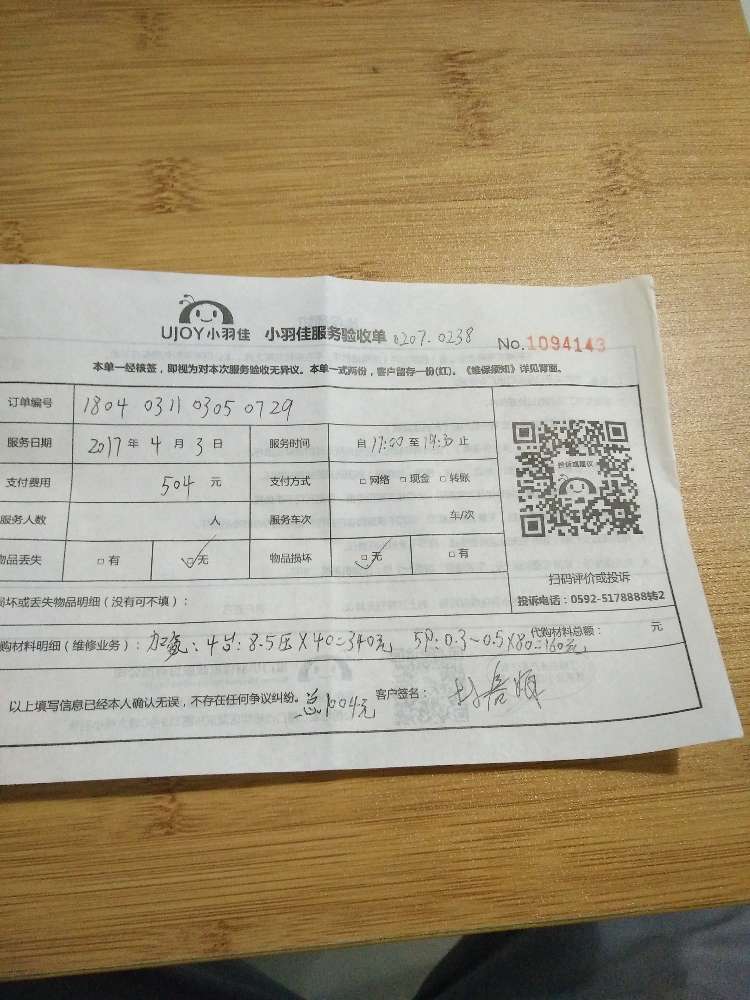 UJOY小羽佳 小羽佳服务验收单 0207.0238 No.1094143
本单一经核签，即视为对本次服务验收无异议。本单一式两份，客户留存一份(红)。《维保须知》详见背面。
订单编号 1804 0311 0305 0729
服务日期 2017年4月3日 服务时间 自17:00至19:30止
支付费用 504元 支付方式 □网络 □现金 □转账
服务人数 人 服务车次 车/次
物品丢失 □有 ☑无 物品损坏 ☑无 □有
投诉或建议
扫码评价或投诉
投诉电话：0592-5178888转2
损坏或丢失物品明细（没有可不填）：
购材料明细（维修业务）：加氟：4台：8.5压×40=340元 5P：0.3-0.5×80=160元 代购材料总额： 元
以上填写信息已经本人确认无误，不存在任何争议纠纷。总1004元 客户签名：